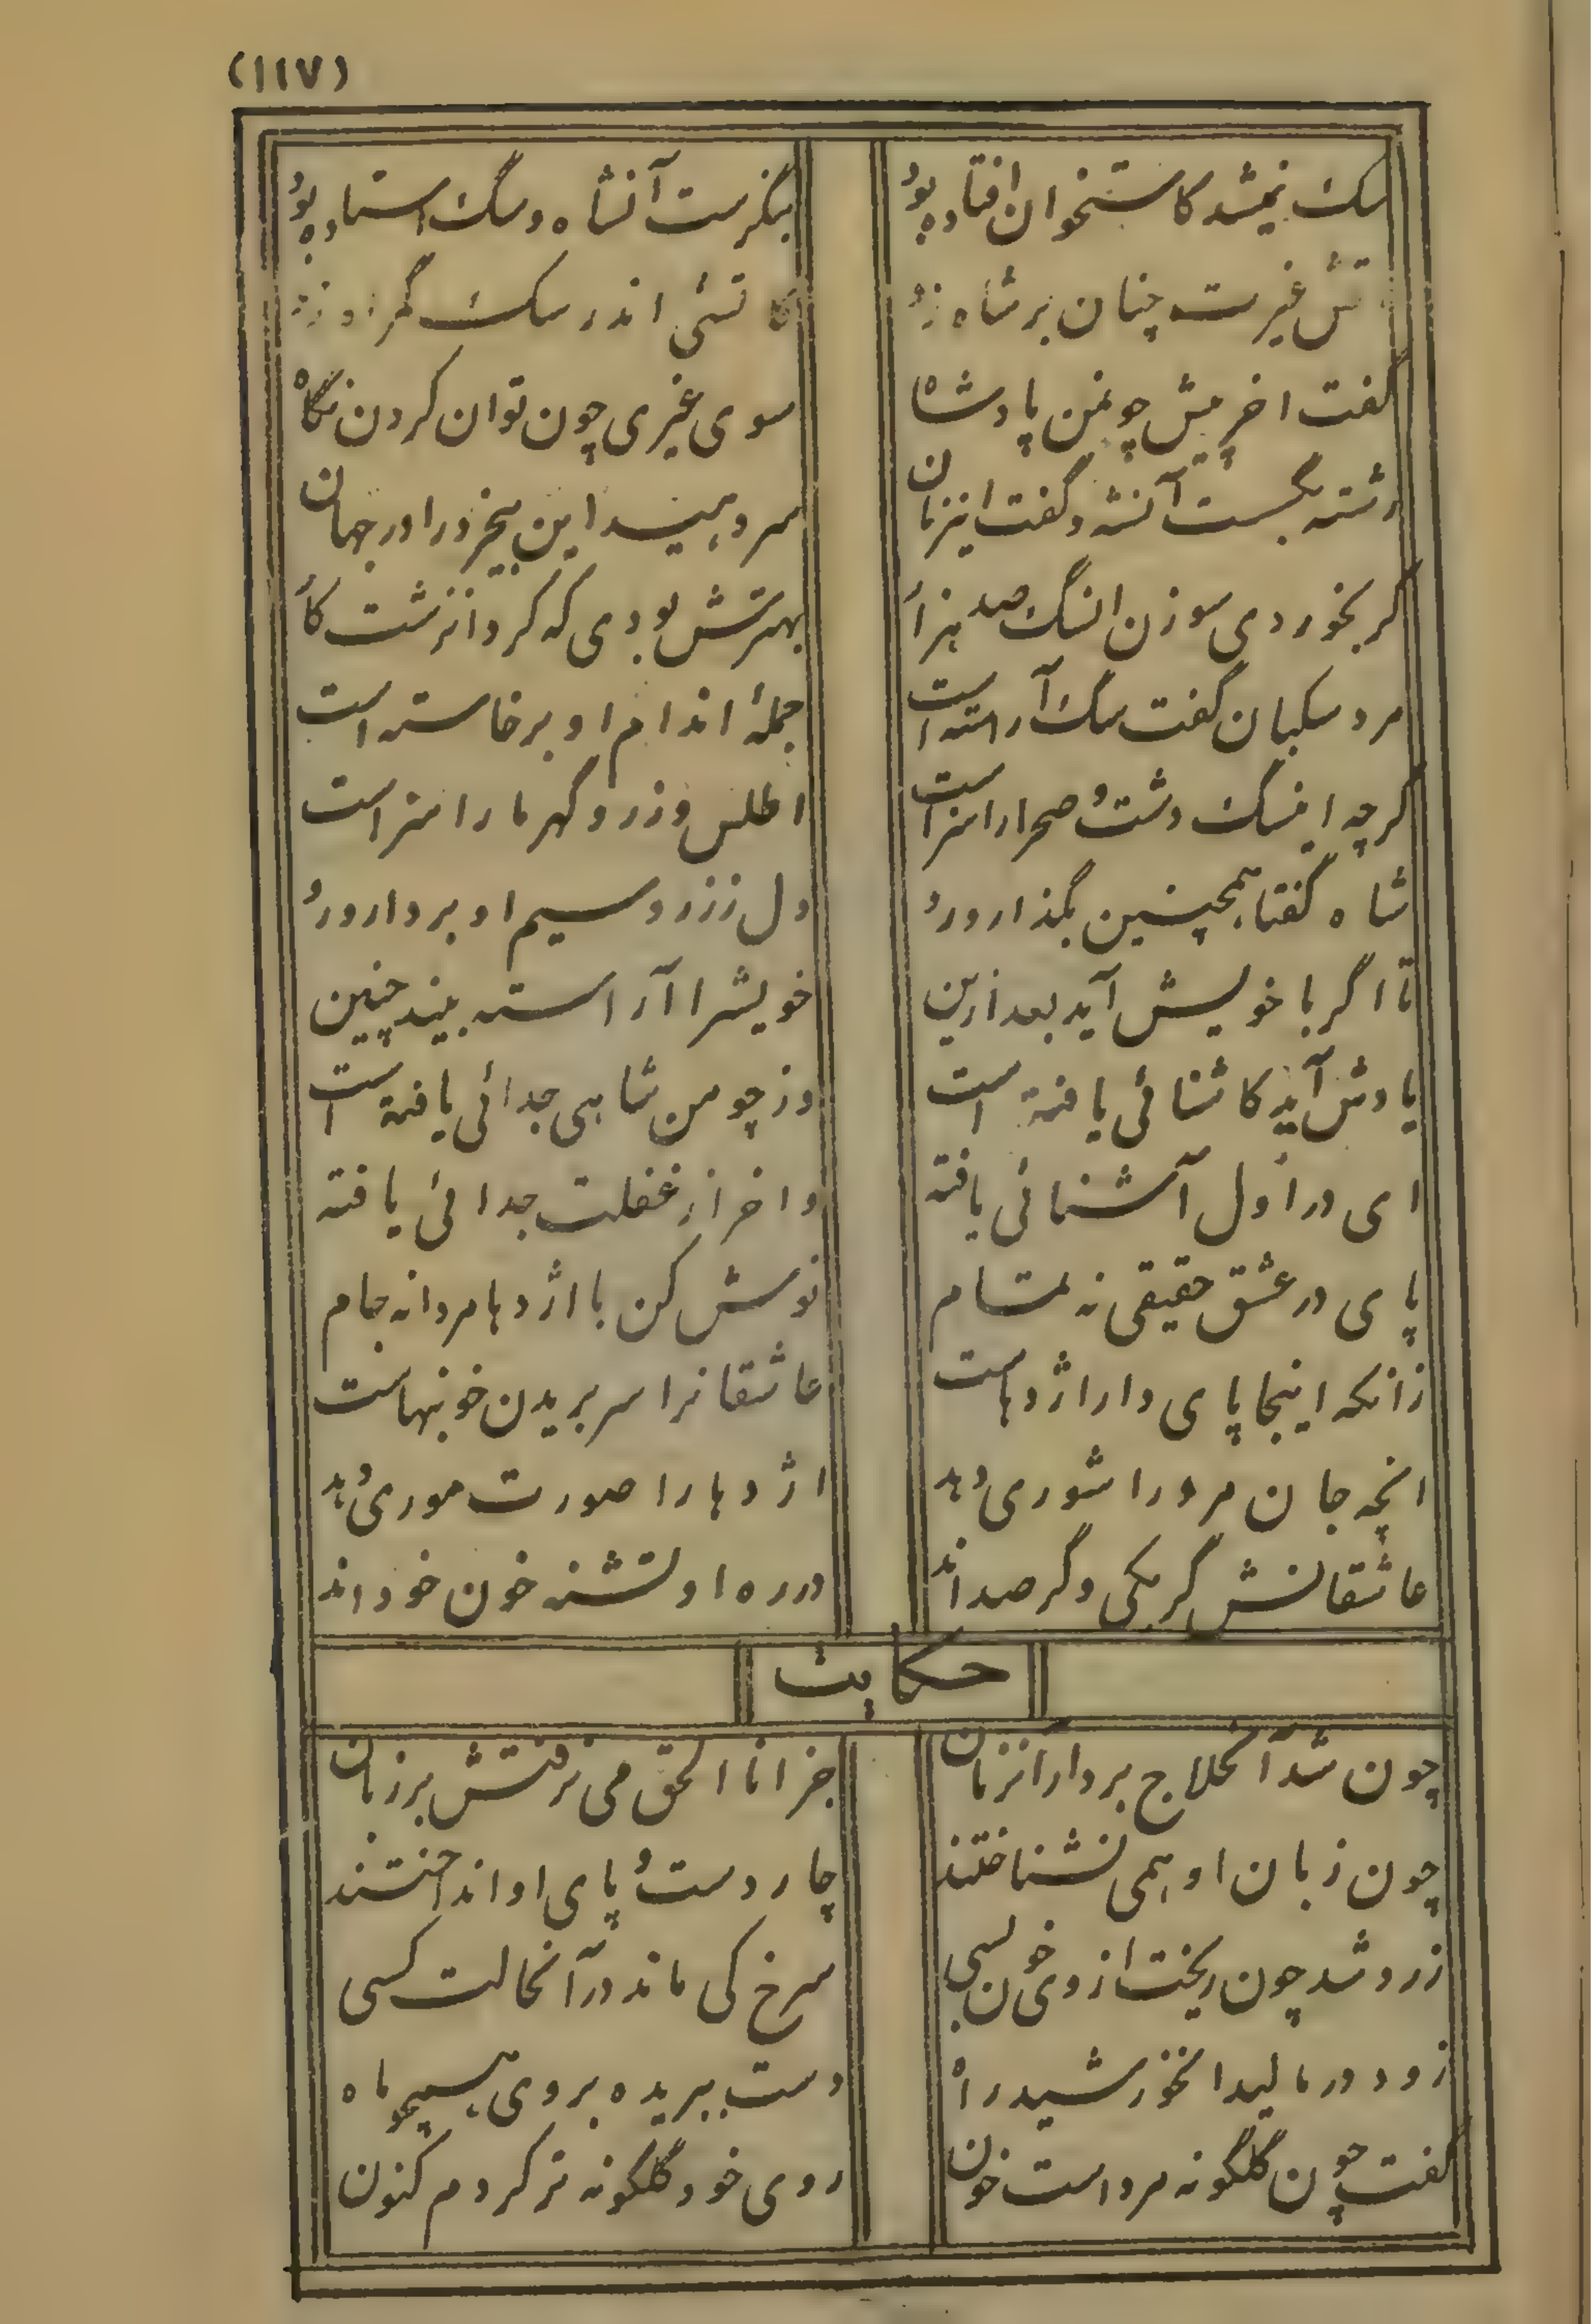 (۱۱۷)
سگ نمیشد کاستخوان افتاده بود بنگرست آنشاه و سگ استاده بود
تش غیرت چنان بر شاه زد کاتشی اندر سگ گمراه زد
گفت اخر پیش چو نمن پادشاه سوی غیری چون توان کردن نگاه
رشته بگسست آنشه و گفت اینزمان سر دهید این بیخرد را در جهان
گر بخوردی سوزن انسگ صد هزار بهترش بودی که کرد انزشت کار
مرد سکبان گفت سگ آراسته است جملهٔ اندام او برخاسته است
گرچه اینسگ دشت و صحرا را سزاست اطلس و زر و گهر ما را سزاست
شاه گفتا همچنین بگذار و رو دل ز زر و سیم او بردار و رو
تا اگر با خویش آید بعد ازین خویشرا آراسته بیند چنین
یادش آید کاشنائی یافته است وز چو من شاهی جدائی یافته است
ای در اول آشنائی یافته واخر از غفلت جدائی یافته
پای در عشق حقیقی نه تمام نوش کن با اژدها مردانه جام
زانکه اینجا پای دار اژدهاست عاشقانرا سر بریدن خونبهاست
انچه جان مرد را شوری دهد اژدها را صورت موری دهد
عاشقانش گر یکی و گر صد اند در ره او تشنه خون خود اند
حکایت
چون شد آنحلاج بر دار آنزمان جز انا الحق می نرفتش بر زبان
چون زبان او همی نشناختند چار دست و پای او انداختند
زرد شد چون ریخت از وی خون بسی سرخ کی ماند در آنحالت کسی
زود در مالید انخورشید راه دست ببریده بروی همچو ماه
گفت چون گلگونه مرد است خون روی خود گلگونه تر کردم کنون